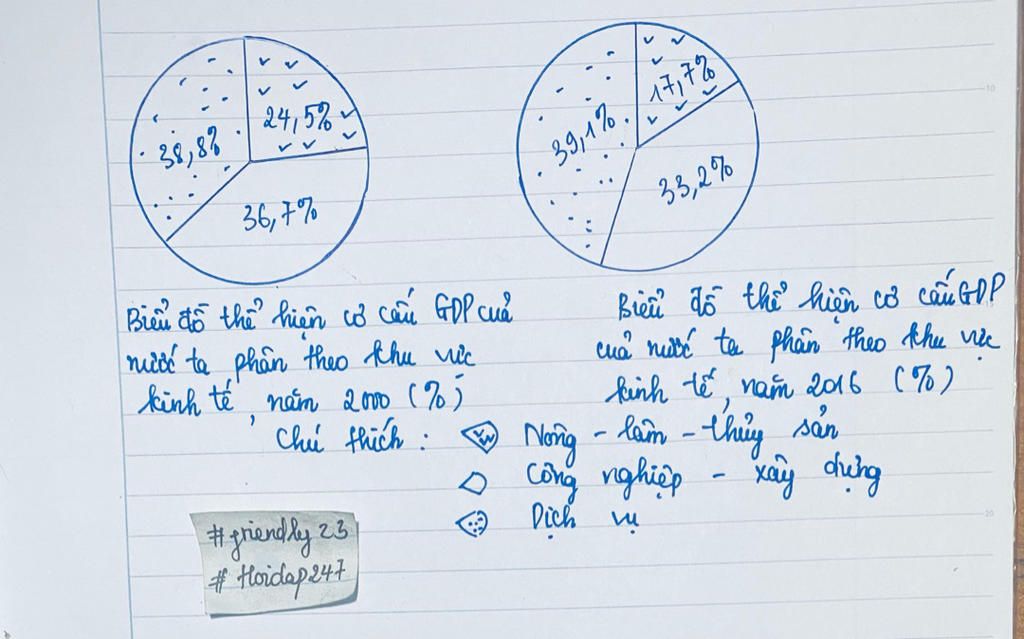 38,8%
24,5%
36,7%
39,1%
17,7%
33,2%
Biểu đồ thể hiện cơ cấu GDP cuả
nước ta phân theo khu vực
kinh tế, năm 2000 (%)
Biểu đồ thể hiện cơ cấu GDP
cuả nước ta phân theo khu vực
kinh tế, năm 2016 (%)
Chú thích:
Nông - lâm - thủy sản
Công nghiệp - xây dựng
Dịch vụ
#friendly23
#Hoidap247
10
20